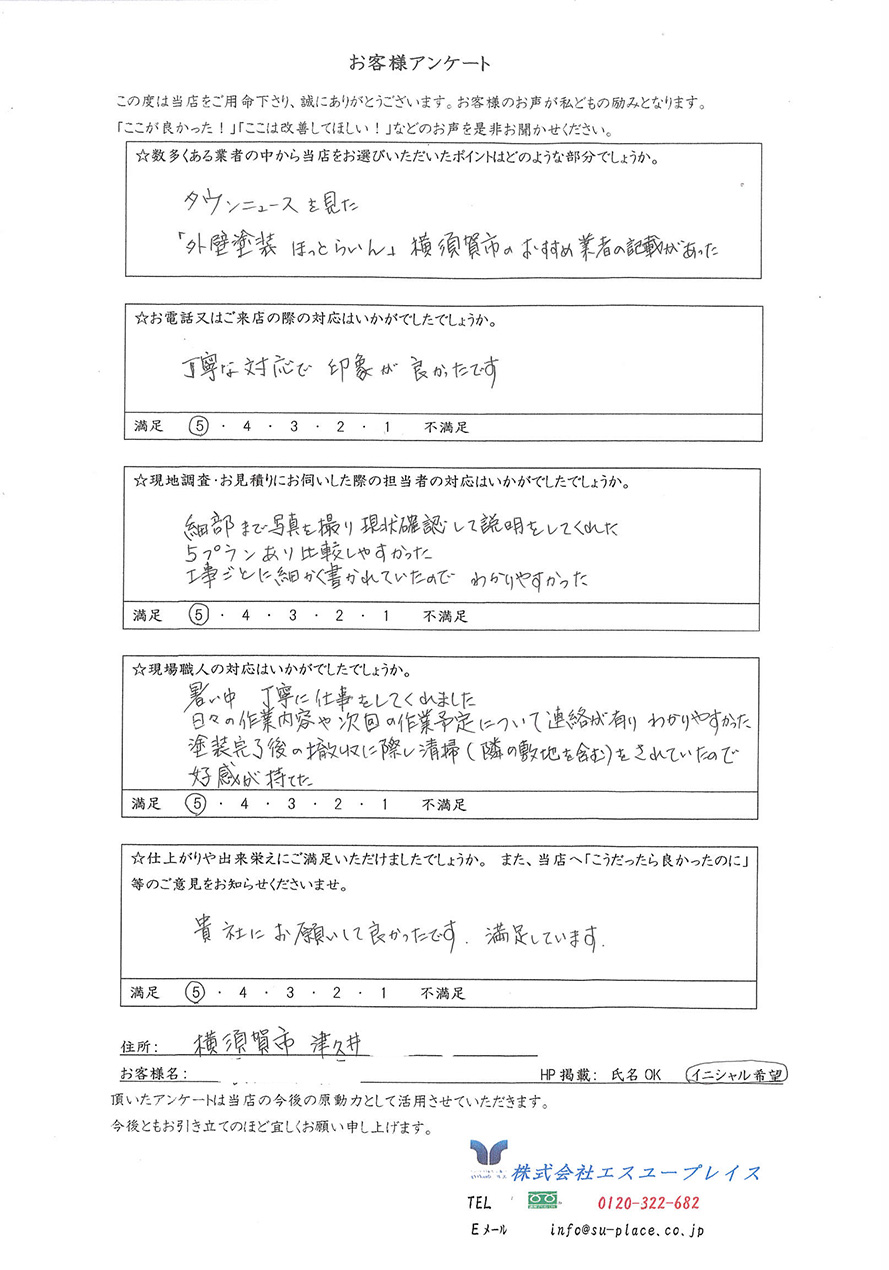 お客様アンケート
この度は当店をご用命下さり、誠にありがとうございます。お客様のお声が私どもの励みとなります。
「ここが良かった！」「ここは改善してほしい！」などのお声を是非お聞かせください。
☆数多くある業者の中から当店をお選びいただいたポイントはどのような部分でしょうか。
タウンニュースを見た
「外壁塗装 ほっとらいん」横須賀市のおすすめ業者の記載があった
☆お電話又はご来店の際の対応はいかがでしたでしょうか。
丁寧な対応で 印象が 良かったです
満足 5 ・ 4 ・ 3 ・ 2 ・ 1 不満足
☆現地調査・お見積りにお伺いした際の担当者の対応はいかがでしたでしょうか。
細部まで写真を撮り現状確認して説明をしてくれた
5プランあり比較しやすかった
工事ごとに細かく書かれていたので わかりやすかった
満足 5 ・ 4 ・ 3 ・ 2 ・ 1 不満足
☆現場職人の対応はいかがでしたでしょうか。
暑い中 丁寧に仕事をしてくれました
日々の作業内容や次回の作業予定について連絡が有り わかりやすかった
塗装完了後の撤収に際し清掃(隣の敷地を含む)をされていたので
好感が持てた
満足 5 ・ 4 ・ 3 ・ 2 ・ 1 不満足
☆仕上がりや出来栄えにご満足いただけましたでしょうか。 また、当店へ「こうだったら良かったのに」
等のご意見をお知らせくださいませ。
貴社にお願いして良かったです. 満足しています.
満足 5 ・ 4 ・ 3 ・ 2 ・ 1 不満足
住所: 横須賀市 津久井
お客様名: HP掲載: 氏名OK イニシャル希望
頂いたアンケートは当店の今後の原動力として活用させていただきます。
今後ともお引き立てのほど宜しくお願い申し上げます。
株式会社エスユープレイス
TEL 0120-322-682
Eメール info@su-place.co.jp